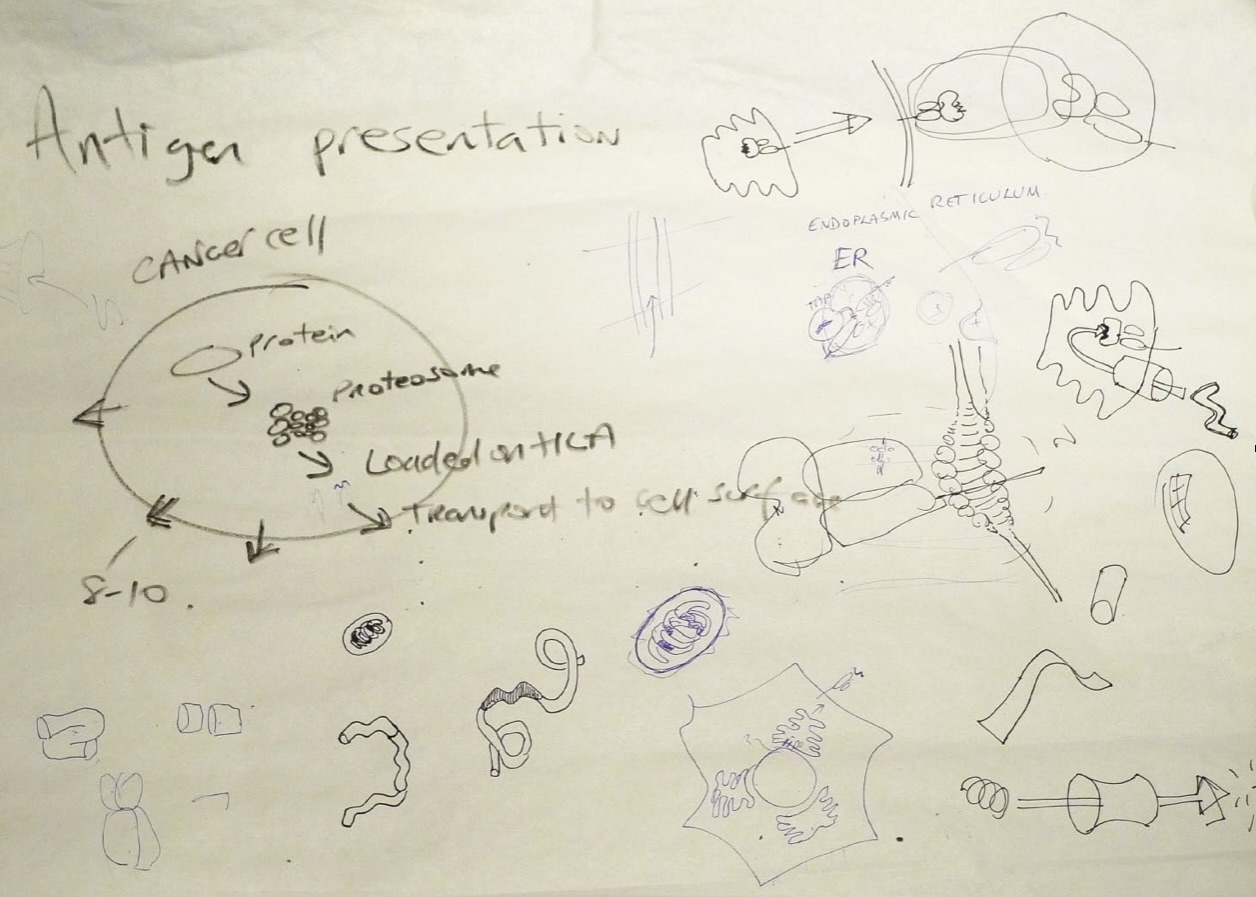 Antigen presentation
CANcer cell
Protein
Proteosome
Loaded on HLA
Transport to cell surface
8-10.
ENDOPLASMIC RETICULUM
ER